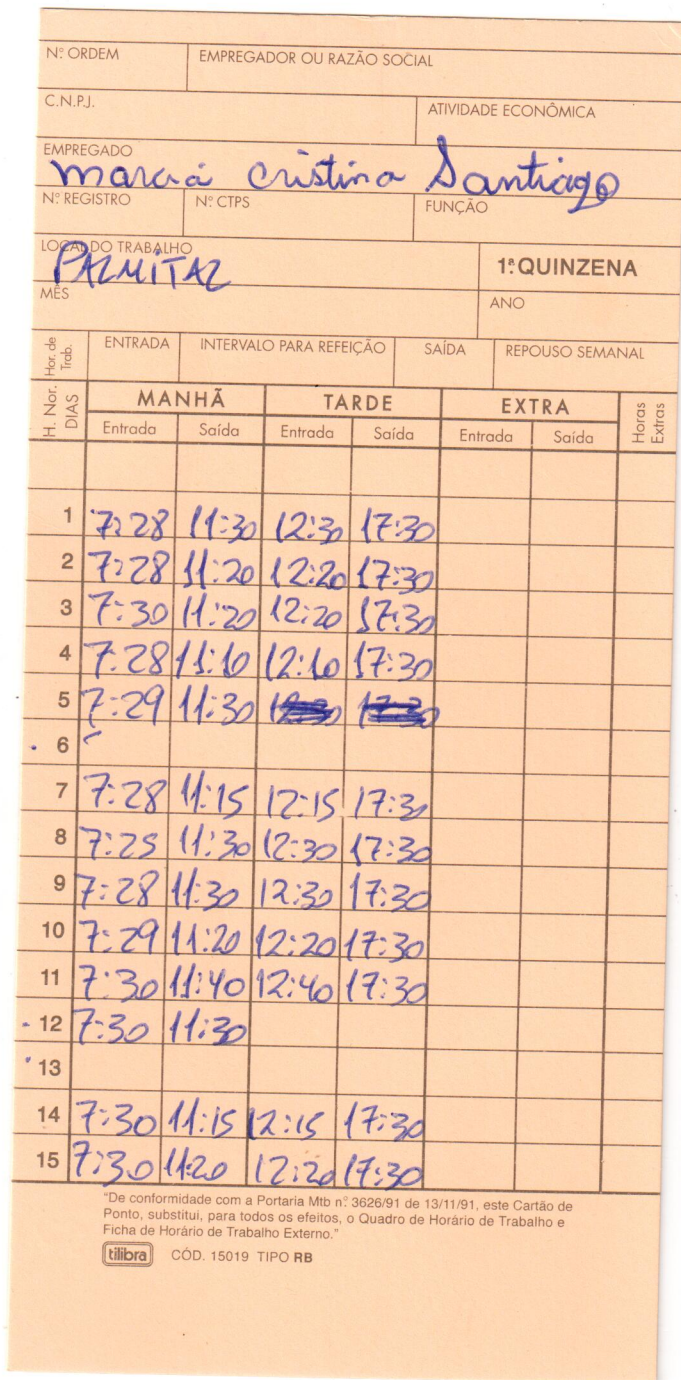 Nº ORDEM EMPREGADOR OU RAZÃO SOCIAL
C.N.P.J. ATIVIDADE ECONÔMICA
EMPREGADO
Cristina Santiago
Nº REGISTRO Nº CTPS FUNÇÃO
LOCAL DO TRABALHO
PALMITAL 1ª QUINZENA
MÊS ANO
Hor. de Trab. ENTRADA INTERVALO PARA REFEIÇÃO SAÍDA REPOUSO SEMANAL
H. Nor. DIAS MANHÃ TARDE EXTRA Horas Extras
Entrada Saída Entrada Saída Entrada Saída
1 7:28 11:30 12:30 17:30
2 7:28 11:20 12:20 17:30
3 7:30 11:20 12:20 17:30
4 7:28 11:10 12:10 17:30
5 7:29 11:30
6
7 7:28 11:15 12:15 17:30
8 7:25 11:30 12:30 17:30
9 7:28 11:30 12:30 17:30
10 7:29 11:20 12:20 17:30
11 7:30 11:40 12:40 17:30
12 7:30 11:30
13
14 7:30 11:15 12:15 17:30
15 7:30 11:20 12:20 17:30
"De conformidade com a Portaria Mtb nº 3626/91 de 13/11/91, este Cartão de
Ponto, substitui, para todos os efeitos, o Quadro de Horário de Trabalho e
Ficha de Horário de Trabalho Externo."
tilibra CÓD. 15019 TIPO RB